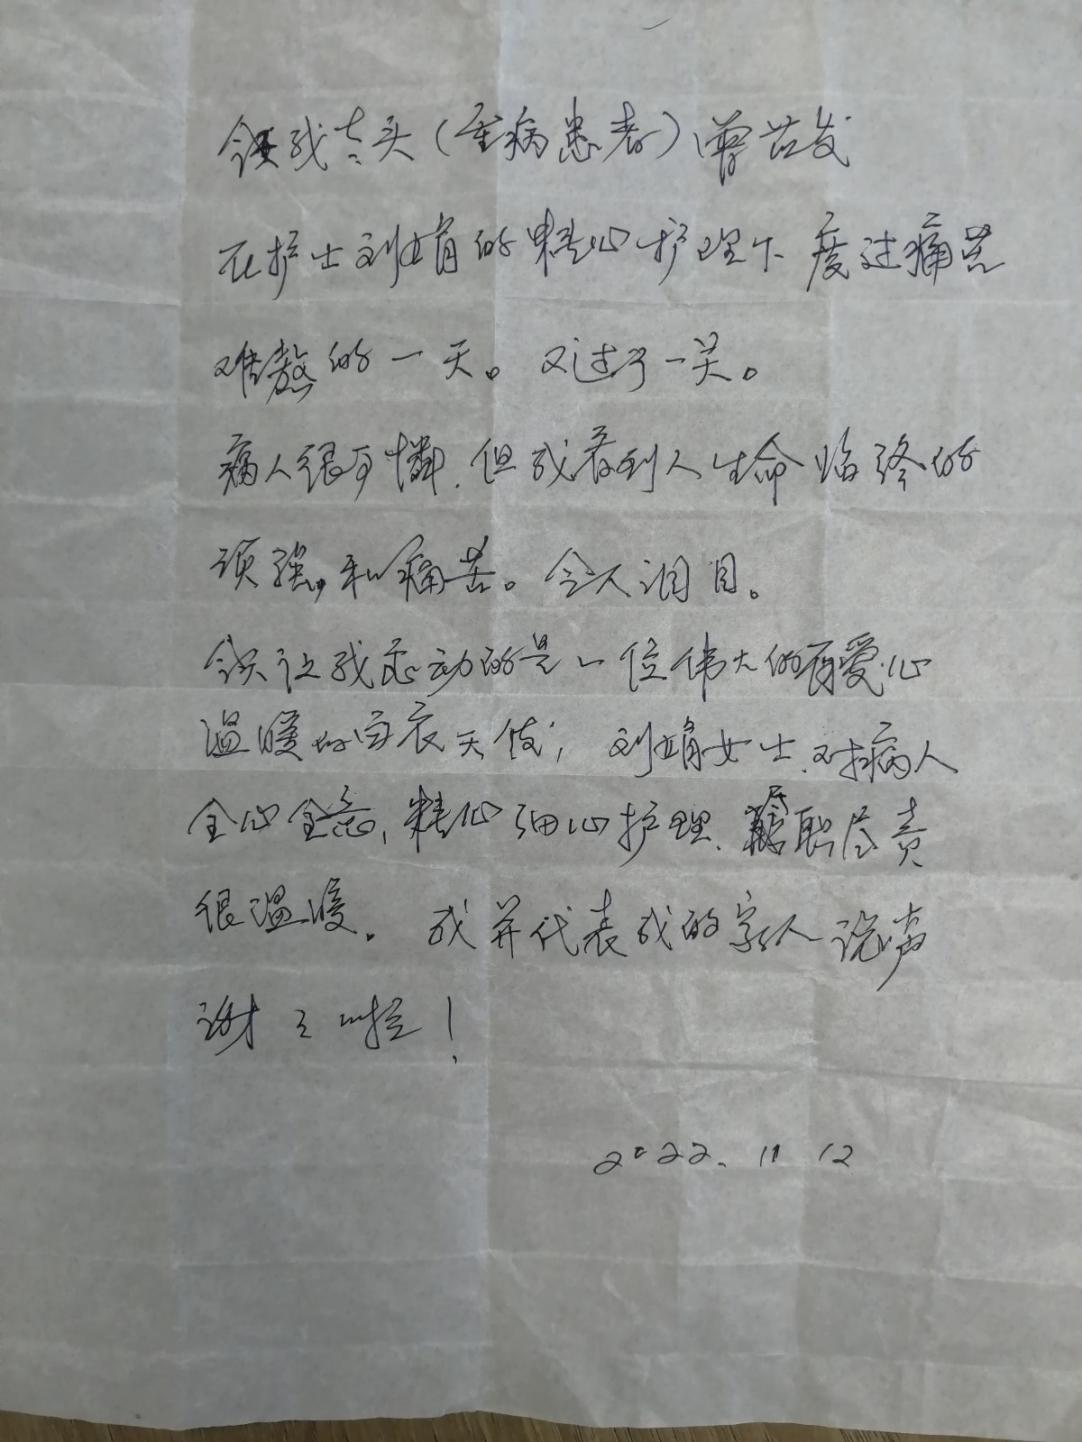 (重病患者)曾范发
在护士刘娟的精心护理下度过痛苦
难熬的一天。又过了一关。
病人很可憐.但我看到人生命临终的
顽强,和痛苦。令人泪目。
让我感动的是一位伟大的有爱心
温暖的白衣天使,刘娟女士.对病人
全心全意,精心细心护理.尽职尽责
很温暖。我并代表我的家人说声
谢谢啦!
2022.11 12